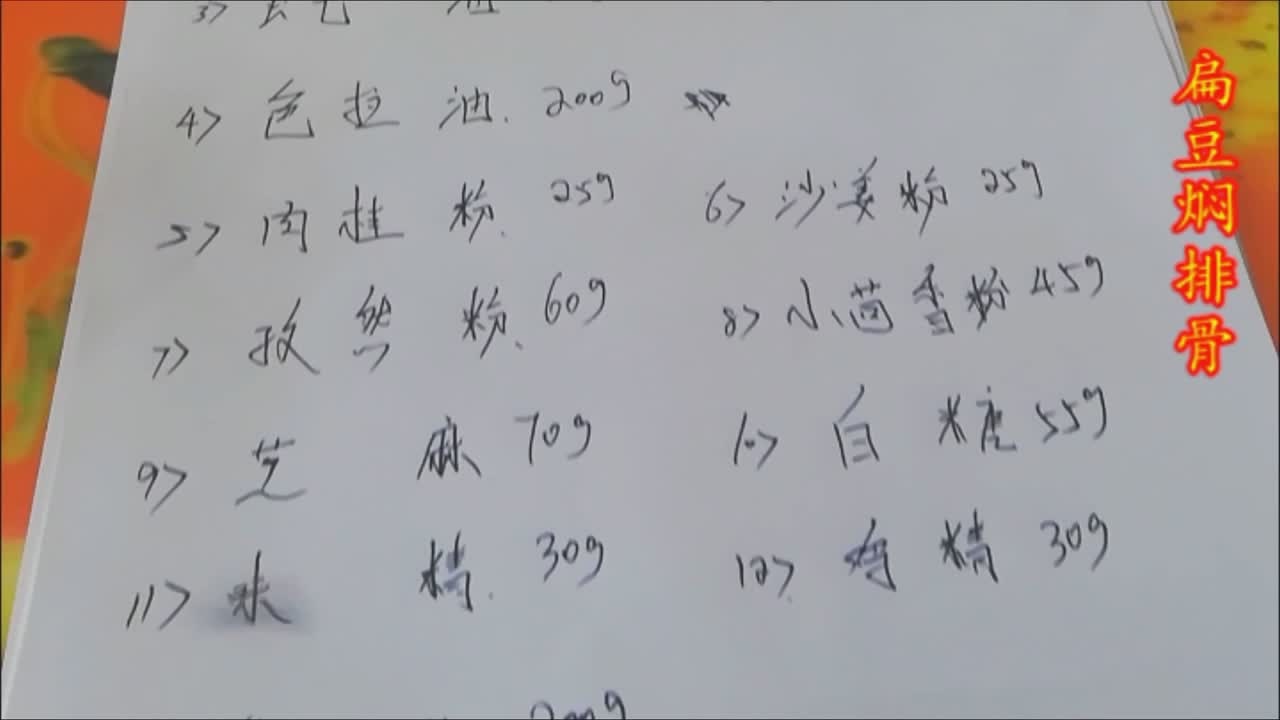 4> 色拉油. 200g
5> 肉桂粉. 25g 6> 沙姜粉 25g
7> 孜然粉. 60g 8> 小茴香粉 45g
9> 芝麻 70g 10> 白糖 55g
11> 味精. 30g 12> 鸡精 30g
200g
扁豆焖排骨